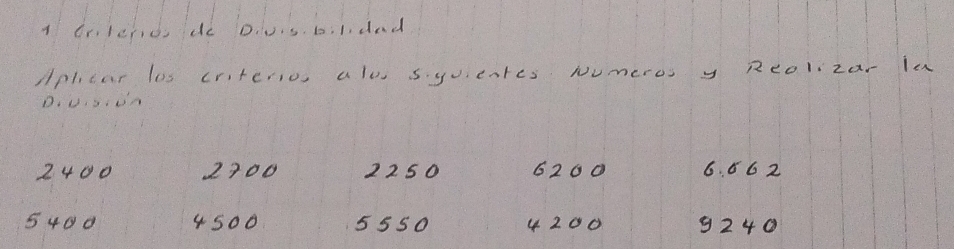 1 Criterios de Divisibilidad
Aplicar los criterios a los siguientes Numeros y Realizar la
División
2400 2700 2250 6200 6.662
5400 4500 5550 4200 9240